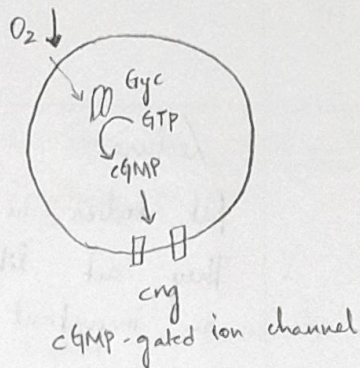 O₂ ↓
Gyc
GTP
cGMP
cng
cGMP-gated ion channel